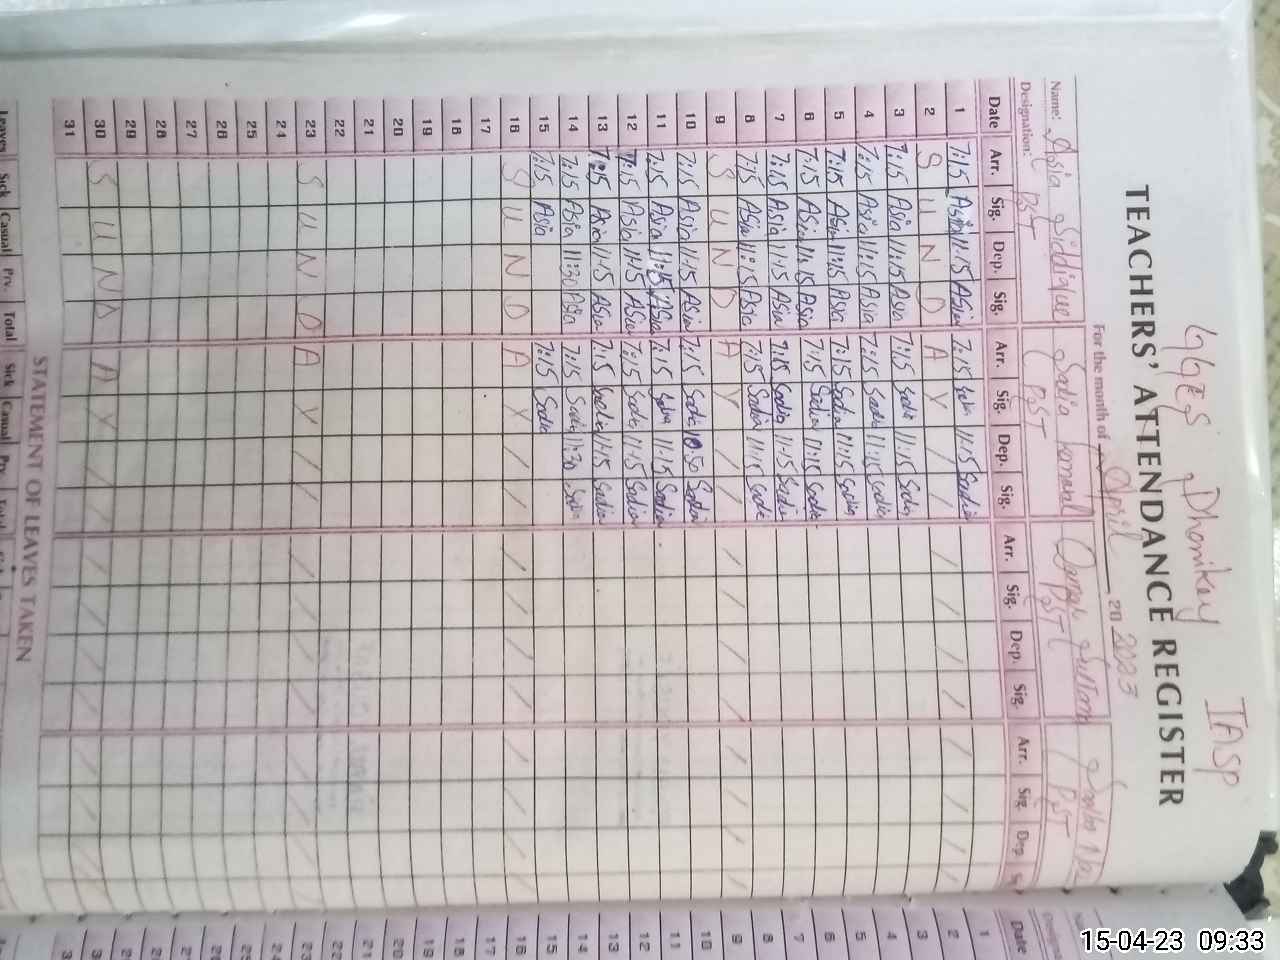 GGPS Dhonikay IASP
TEACHERS' ATTENDANCE REGISTER
For the month of April 2023
Name: Asia Siddique Sadia Komal
Designation: PST PST PST PST
Date Arr. Sig. Dep. Sig. Arr. Sig. Dep. Sig. Arr. Sig. Dep. Sig. Arr. Sig. Dep.
1 7:15 Asia 11:15 Asia 7:15 Sadia 11:15 Sadia
2 S U N D A Y / / / / / / / / / /
3 7:15 Asia 11:15 Asia 7:15 Sadia 11:15 Sadia
4 7:15 Asia 11:15 Asia 7:15 Sadia 11:15 Sadia
5 7:15 Asia 11:15 Asia 7:15 Sadia 11:15 Sadia
6 7:15 Asia 11:15 Asia 7:15 Sadia 11:15 Sadia
7 7:15 Asia 11:15 Asia 7:15 Sadia 11:15 Sadia
8 7:15 Asia 11:15 Asia 7:15 Sadia 11:15 Sadia
9 S U N D A Y / / / / / / / / / /
10 7:15 Asia 11:15 Asia 7:15 Sadia 10:50 Sadia
11 7:15 Asia 11:15 Asia 7:15 Sadia 11:15 Sadia
12 7:15 Asia 11:15 Asia 7:15 Sadia 11:15 Sadia
13 7:15 Asia 11:15 Asia 7:15 Sadia 11:15 Sadia
14 7:15 Asia 11:30 Asia 7:15 Sadia 11:30 Sadia
15 7:15 Asia 7:15 Sadia
16 S U N D A Y / / / / / / / / / /
17
18
19
20
21
22
23 S U N D A Y / / / / / / / / / /
24
25
26
27
28
29
30 S U N D A Y / / / / / / / / / /
31
STATEMENT OF LEAVES TAKEN
Leaves Sick Casual Prv. Total Sick Casual Prv. Total
Date
1
2
3
4
5
6
7
8
9
10
11
12
13
14
15
16
17
18
19
20
21
22
23
24
25
26
27
28
29
15-04-23 09:33